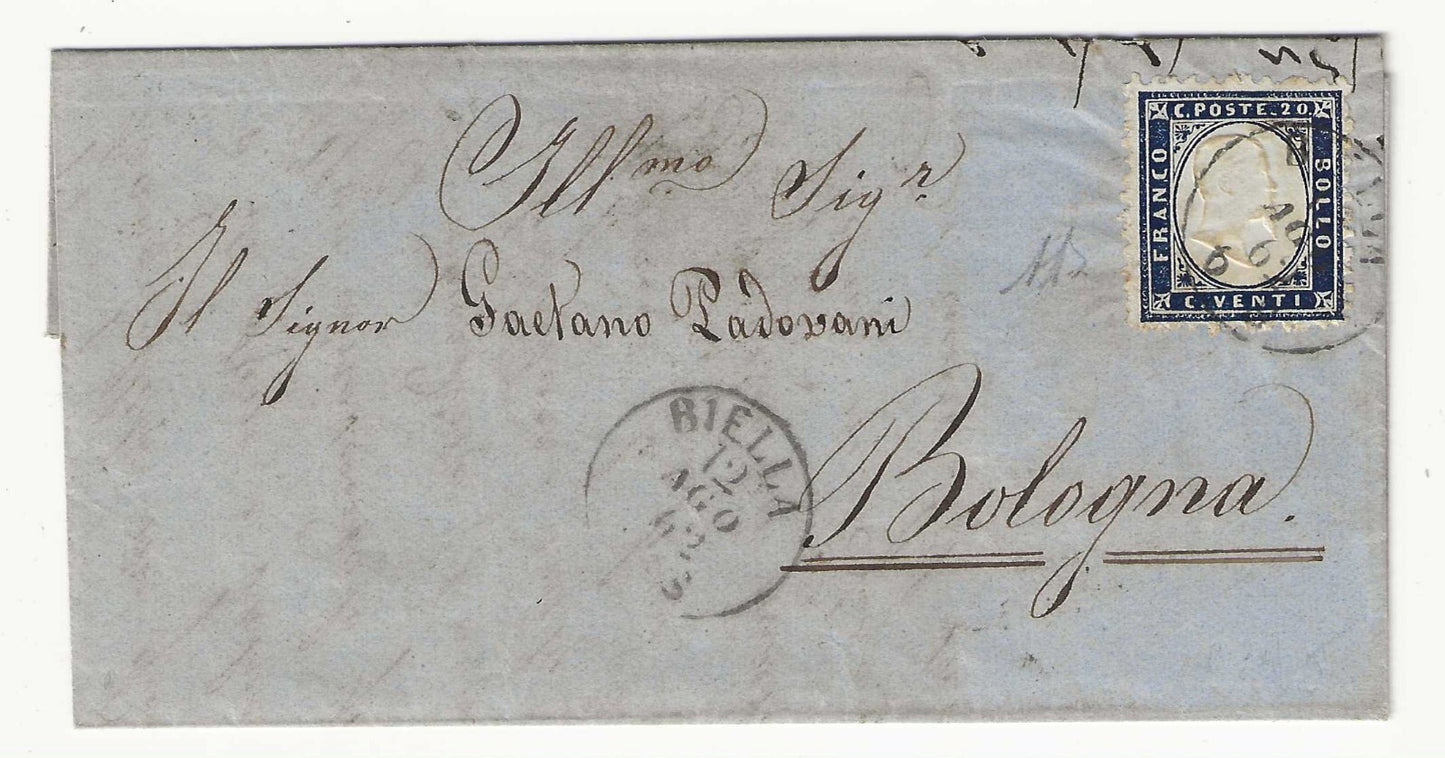 Ill.mo Sig.r
Il Signor Gaetano Padovani
Bologna.
C. POSTE. 20
FRANCO
BOLLO
C. VENTI
BIELLA
12
AGO